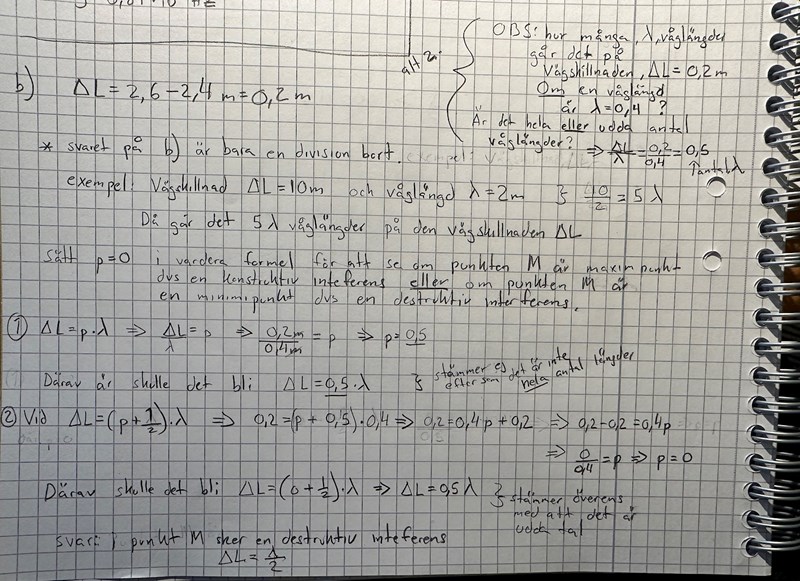 b) ΔL = 2,6 - 2,4 m = 0,2 m
alt 2:
OBS: hur många, λ, våglängder
går det på
Vägskillnaden, ΔL = 0,2 m
Om en våglängd
är λ = 0,4 ?
Är det hela eller udda antal
våglängder? ⇒ ΔL/λ = 0,2/0,4 = 0,5
↑antal λ
* svaret på b) är bara en division bort.
exempel: Vägskillnad ΔL = 10m och våglängd λ = 2m } 10/2 = 5 λ
Då går det 5 λ våglängder på den vägskillnaden ΔL
Sätt p=0 i vardera formel för att se om punkten M är maximpunkt
dvs en konstruktiv inteferens eller om punkten M är
en minimipunkt dvs en destruktiv interferens.
① ΔL = p·λ ⇒ ΔL/λ = p ⇒ 0,2m/0,4m = p ⇒ p = 0,5
Därav är skulle det bli ΔL = 0,5·λ } stämmer ej det är inte
efter som hela antal längder
② Vid ΔL = (p + 1/2)·λ ⇒ 0,2 = (p + 0,5)·0,4 ⇒ 0,2 = 0,4p + 0,2 ⇒ 0,2 - 0,2 = 0,4p
⇒ 0/0,4 = p ⇒ p = 0
Därav skulle det bli ΔL = (0 + 1/2)·λ ⇒ ΔL = 0,5 λ } stämmer överens
med att det är
udda tal
svar: i punkt M sker en destruktiv inteferens
ΔL = λ/2